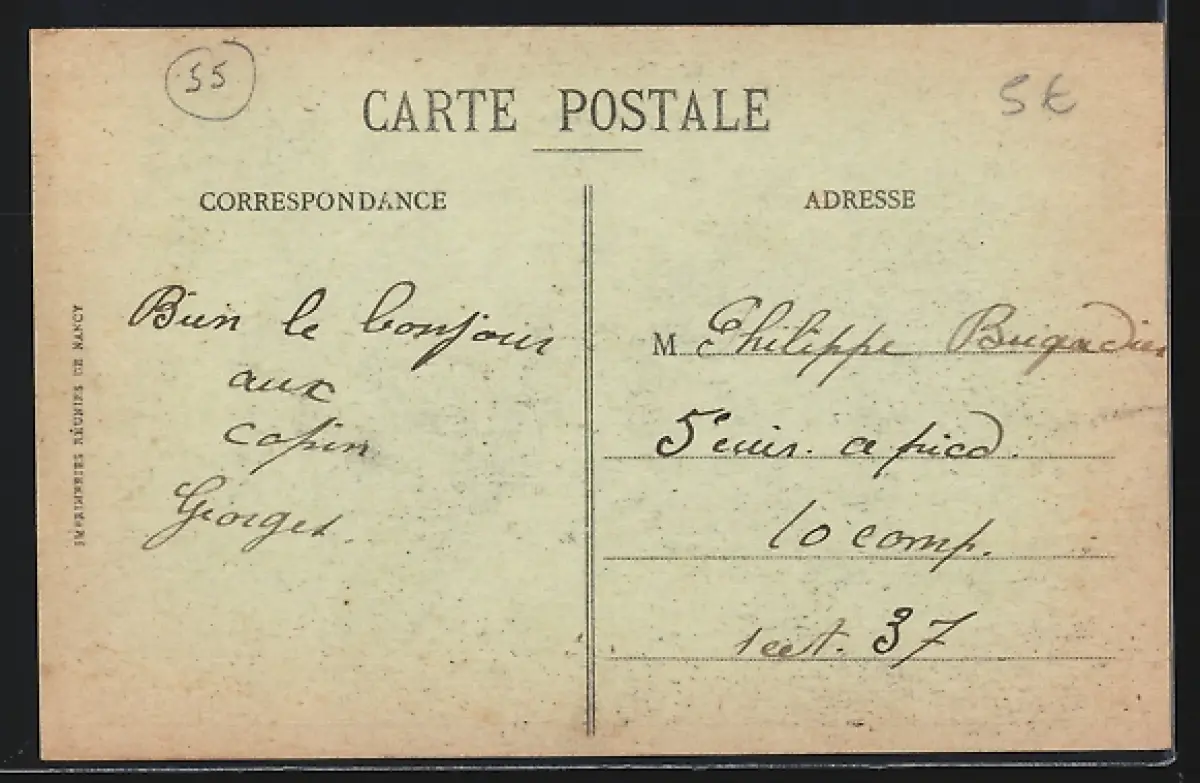 55
5€
CARTE POSTALE
CORRESPONDANCE
Bien le bonjour
aux
copin
Georges.
ADRESSE
M Philippe Brigadier
5e cuir. a pied.
10 comp.
sect. 37
IMPRIMERIES RÉUNIES DE NANCY